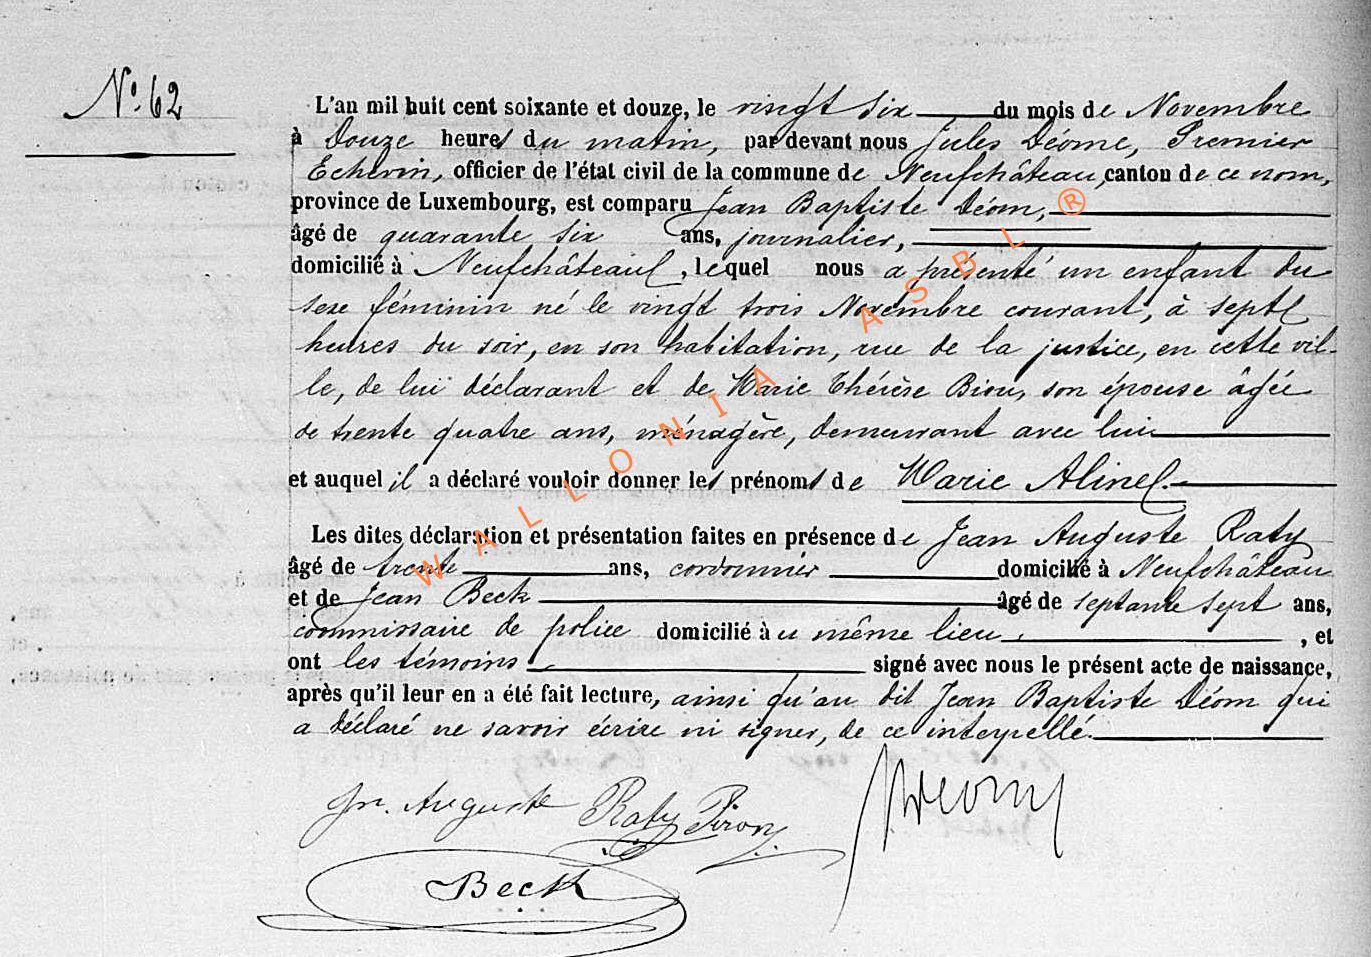 N° 62
L'an mil huit cent soixante et douze, le vingt six du mois de Novembre
à Douze heures du matin, par devant nous Jules Déome, Premier
Echevin, officier de l'état civil de la commune de Neufchâteau, canton de ce nom,
province de Luxembourg, est comparu Jean Baptiste Déom,
âgé de quarante six ans, journalier,
domicilié à Neufchâteau, lequel nous a présenté un enfant du
sexe féminin né le vingt trois Novembre courant, à sept
heures du soir, en son habitation, rue de la justice, en cette vil-
le, de lui déclarant et de Marie Thérèse son épouse âgée
de trente quatre ans, ménagère, demeurant avec lui
et auquel il a déclaré vouloir donner les prénoms de Marie Aline.
Les dites déclaration et présentation faites en présence de Jean Auguste Raty
âgé de trente ans, cordonnier domicilié à Neufchâteau
et de Jean Beck âgé de septante sept ans,
commissaire de police domicilié au même lieu, et
ont les témoins signé avec nous le présent acte de naissance,
après qu'il leur en a été fait lecture, ainsi qu'au dit Jean Baptiste Déom qui
a déclaré ne savoir écrire ni signer, de ce interpellé.
Jn. Auguste Raty Piron
Déome
Beck
WALLONIA ASBL ®